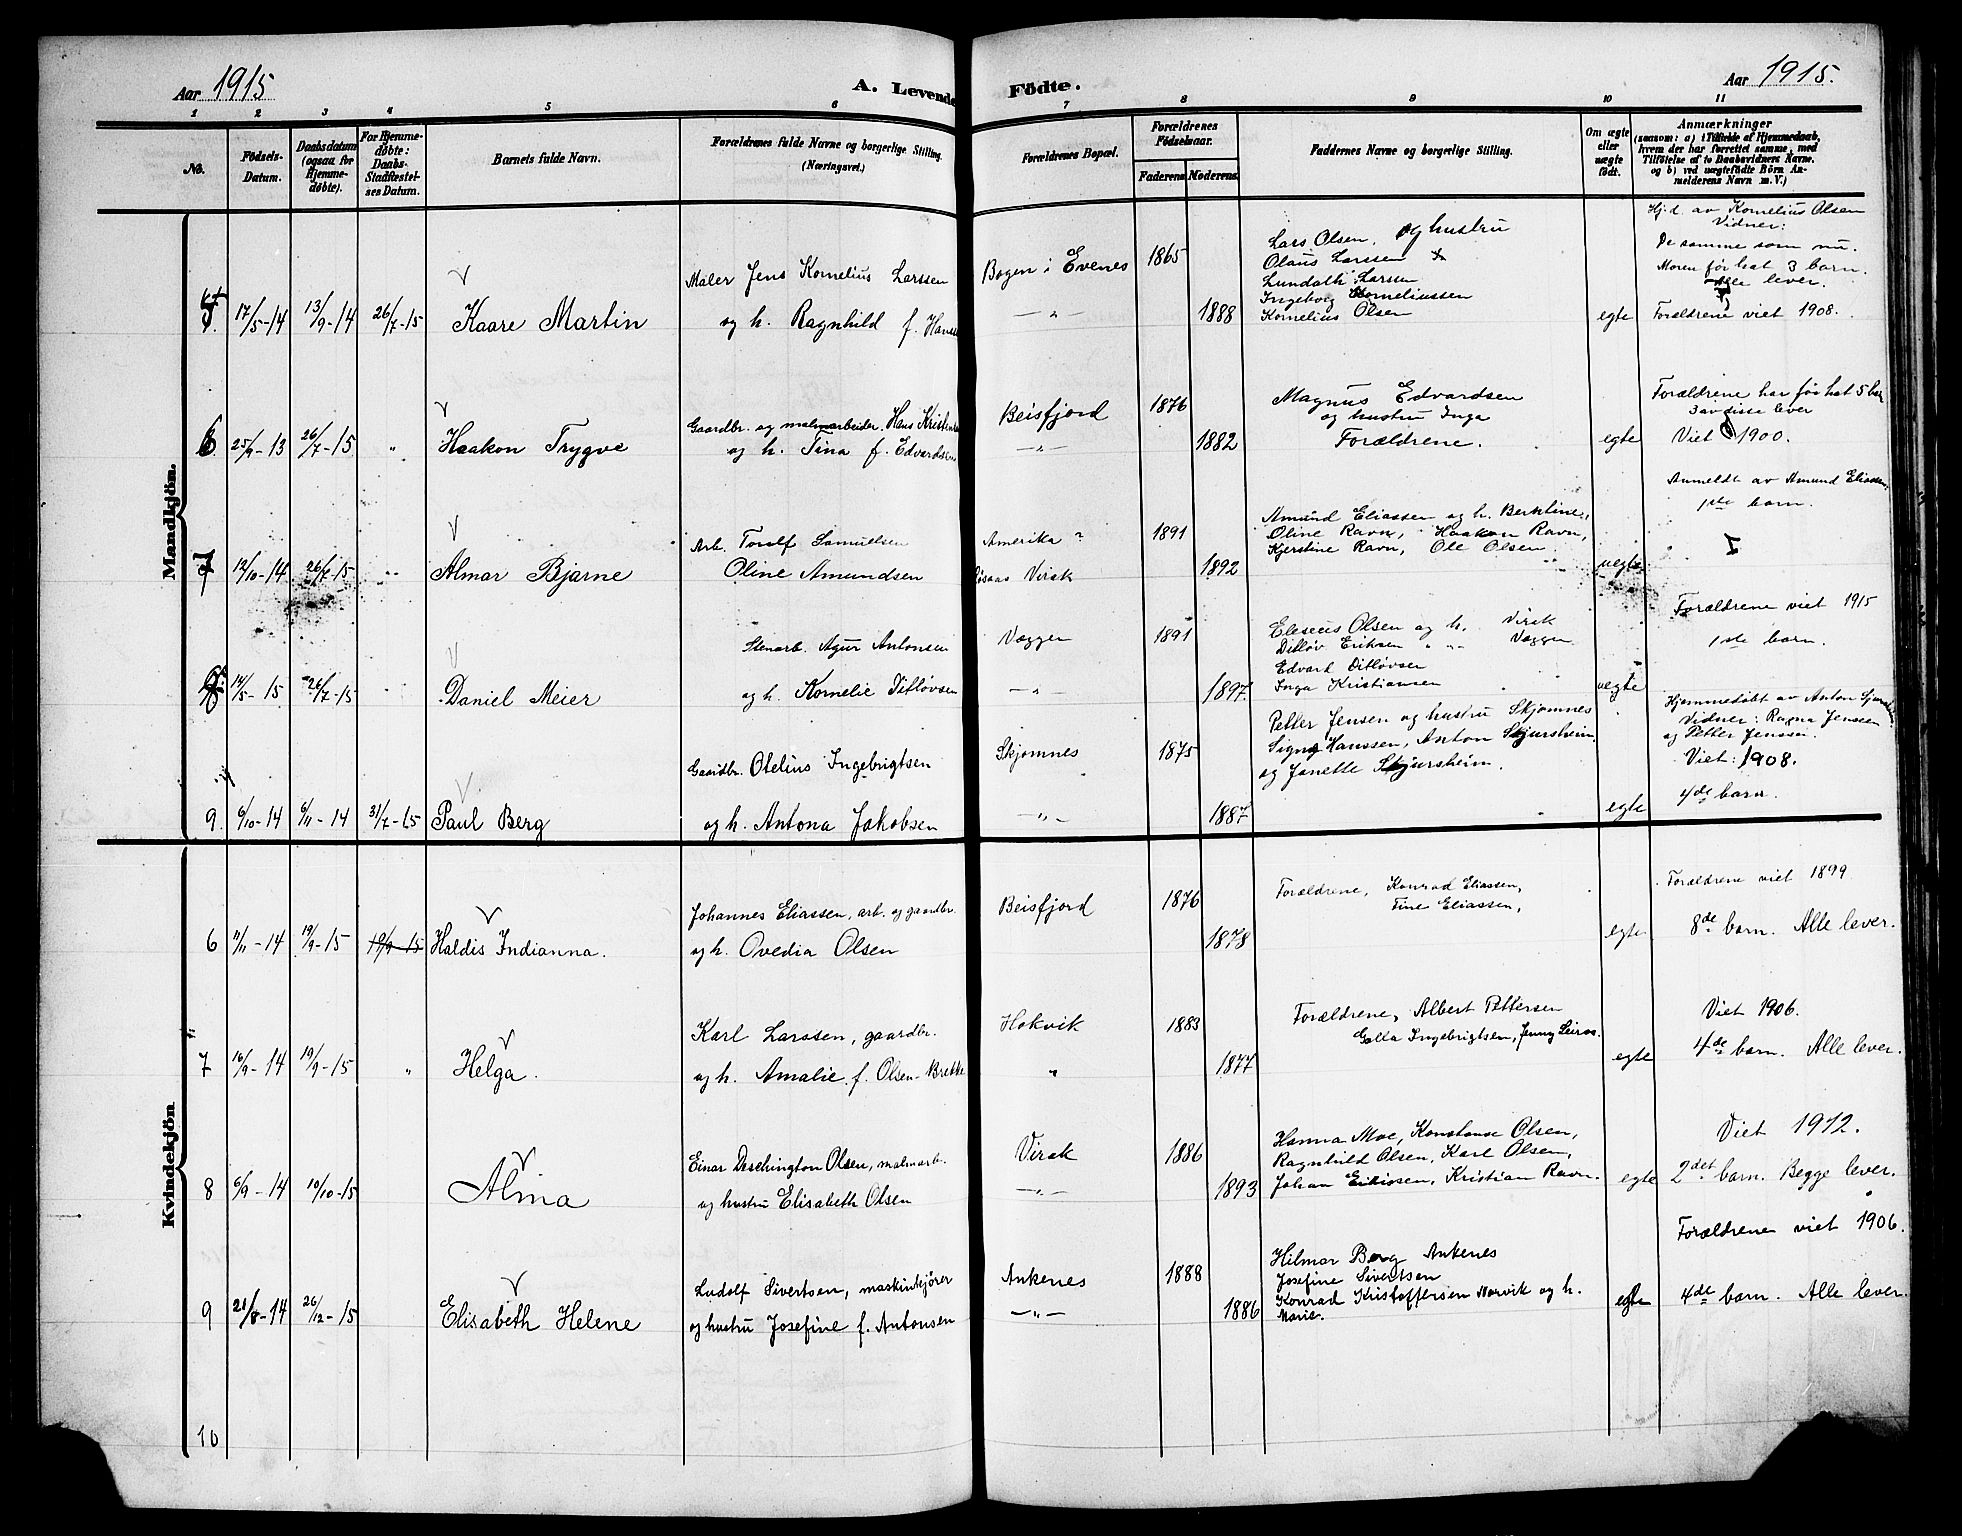 Aar 1915
A. Levende Födte.
Aar 1915.
1 2 3 4 5 6 7 8 9 10 11
No.
Födsels-
Datum.
Daabsdatum
(ogsaa for
Hjemme-
døbte).
For Hjemme-
døbte:
Daabs-
Stadfæstel-
ses Datum.
Barnets fulde Navn.
Forældrenes fulde Navne og borgerlige Stilling.
(Næringsvei.)
Forældrenes Bopæl.
Forældrenes
Fødselsaar.
Faderens.
Moderens.
Faddernes Navne og borgerlige Stilling.
Om ægte
eller
uægte
født.
Anmærkninger
(saasom: a) i Tilfælde af Hjemmedaab,
hvem der har forrettet samme, med
Tilføielse af to Daabsvidners Navne.
og b) ved uægtefødte Børn An-
melderens Navn m. V.)
Mandkjön.
17/5-14 13/9-14 26/7-15 Kaare Martin
Maler Jens Kornelius Larssen
og h. Ragnhild f. Hanse
Bogen i Evenes
—"—
1865
1888
Lars Olsen, og hustru
Olaus Larssen
Lundath Larssen
Ingeborg Korneliussen
Kornelius Olsen
egte
Hj.d. av Kornelius Olsen
Vidner:
De samme som nu.
Moren før hat 3 barn.
Alle lever.
Forældrene viet 1908.
6 25/9-13 26/7-15 " Haakon Trygve
Gaardbr. og malmarbeider Hans Kristensen
og h. Tina f. Edvardsen
Beisfjord
—"—
1876
1882
Magnus Edvardsen
og hustru Inga
Forældrene.
egte
Forældrene har før hat 5 bar
3 av disse lever
Viet 1900.
7 12/10-14 26/7-15 " Almar Bjarne
Arb. Toralf Samuelsen
Oline Amundsen
Amerika ?
Virak
1891
1892
Amund Eliassen og h. Berntine,
Oline Ravn, Haakon Ravn,
Kjerstine Ravn, Ole Olsen
uegte
Anmeldt av Amund Eliassen.
1ste barn.
8 14/5-15 26/7-15 " Daniel Meier
Stenarb. Agur Antonsen
og h. Kornelie Ditløvsen
Væggen
—"—
1891
1897
Eleseus Olsen og h. Virik
Ditløv Eriksen " " Væggen
Edvard Ditløvsen
Inga Kristiansen
uegte
Forældrene viet 1915
1ste barn.
9. 6/10-14 6/11-14 31/7-15 Paul Berg
Gaardbr. Otelius Ingebrigtsen
og h. Antona Jakobsen
Skjomnes
—"—
1875
1887
Petter Jensen og hustru Skjomnes
Signe Hanssen, Anton Skjursheim
og Janette Skjursheim.
egte
Hjemmedøbt av Anton Skjursheim
Vidner: Ragna Jenssen
og Petter Jenssen.
Viet: 1908.
4de barn.
Kvindekjön
6 11/11-14 19/9-15 19/9-15 Haldis Indianna.
Johannes Eliassen, arb. og gaardbr.
og h. Ovedia Olsen
Beisfjord
1876
1878
Forældrene, Konrad Eliassen,
Tine Eliassen,
egte
Forældrene viet 1899
8de barn. Alle lever.
7 16/9-14 19/9-15 " Helga.
Karl Larssen, gaardbr.
og h. Amalie f. Olsen-Brekke
Hokvik
"
1883
1877
Forældrene, Albert Pettersen
Golla Ingebrigtsen, Jenny Leiros.
egte
Viet 1906.
4de barn. Alle lever.
8 6/9-14 10/10-15 Alma
Einar Deschington Olsen, malmarb.
og hustru Elisabeth Olsen
Virak
—"—
1886
1893
Hanna Moe, Konstanse Olsen,
Ragnhild Olsen, Karl Olsen,
Johan Eriksen, Kristian Ravn.
egte
Viet 1912.
2det barn. Begge lever.
9 21/8-14 26/12-15 Elisabeth Helene
Ludolf Sivertsen, maskinkjører
og hustru Josefine f. Antonsen
Ankenes
—"—
1888
1886
Hilmar Berg Ankenes
Josefine Sivertsen
Konrad Kristoffersen Narvik og h.
Marie.
egte
Forældrene viet 1906.
4de barn. Alle lever.
10